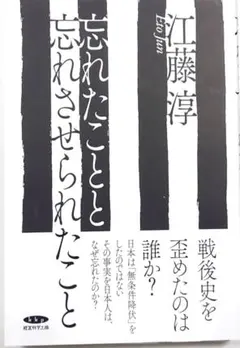 江藤 淳
Eto Jun
忘れたことと
忘れさせられたこと
戦後史を
歪めたのは
誰か?
日本は「無条件降伏」を
したのではない
その事実を日本人は、
なぜ忘れたのか?
経営科学出版